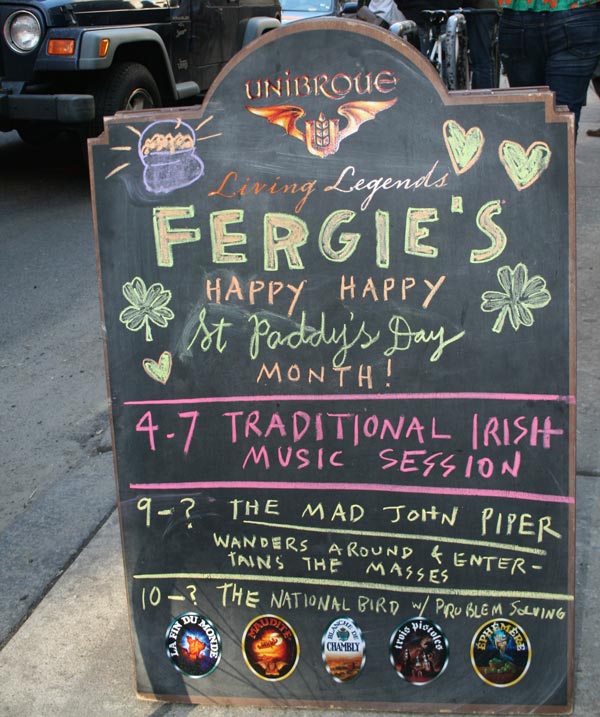 UNIBROUE
Living Legends
FERGIE'S
HAPPY HAPPY
St Paddy's Day
MONTH!
4-7 TRADITIONAL IRISH
MUSIC SESSION
9-? THE MAD JOHN PIPER
WANDERS AROUND & ENTER-
TAINS THE MASSES
10-? THE NATIONAL BIRD w/ PROBLEM SOLVING
LA FIN DU MONDE
MAUDITE
BLANCHE DE
CHAMBLY
trois pistoles
ÉPHÉMÈRE